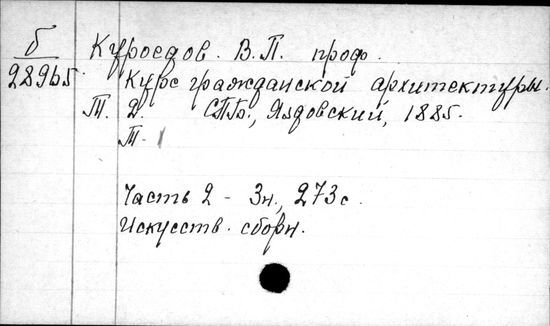 б Куроедов. В.П. проф.
28965 Курс гражданской архитектуры.
Т. 2. СПБ., Яздовский, 1885.
Т. 1
Часть 2 - 3н., 273 с.
Искусств. сборн.